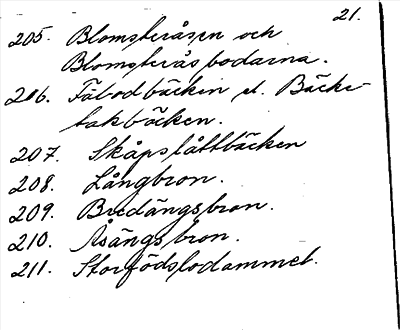 21.
205. Blomsteråsen och
Blomsteråsbodarna.
206. Fäbodbäcken el. Bäcke-
bäcken.
207. Skåpslåttbäcken
208. Långbron.
209. Bredängsbron.
210. Åsängsbron.
211.